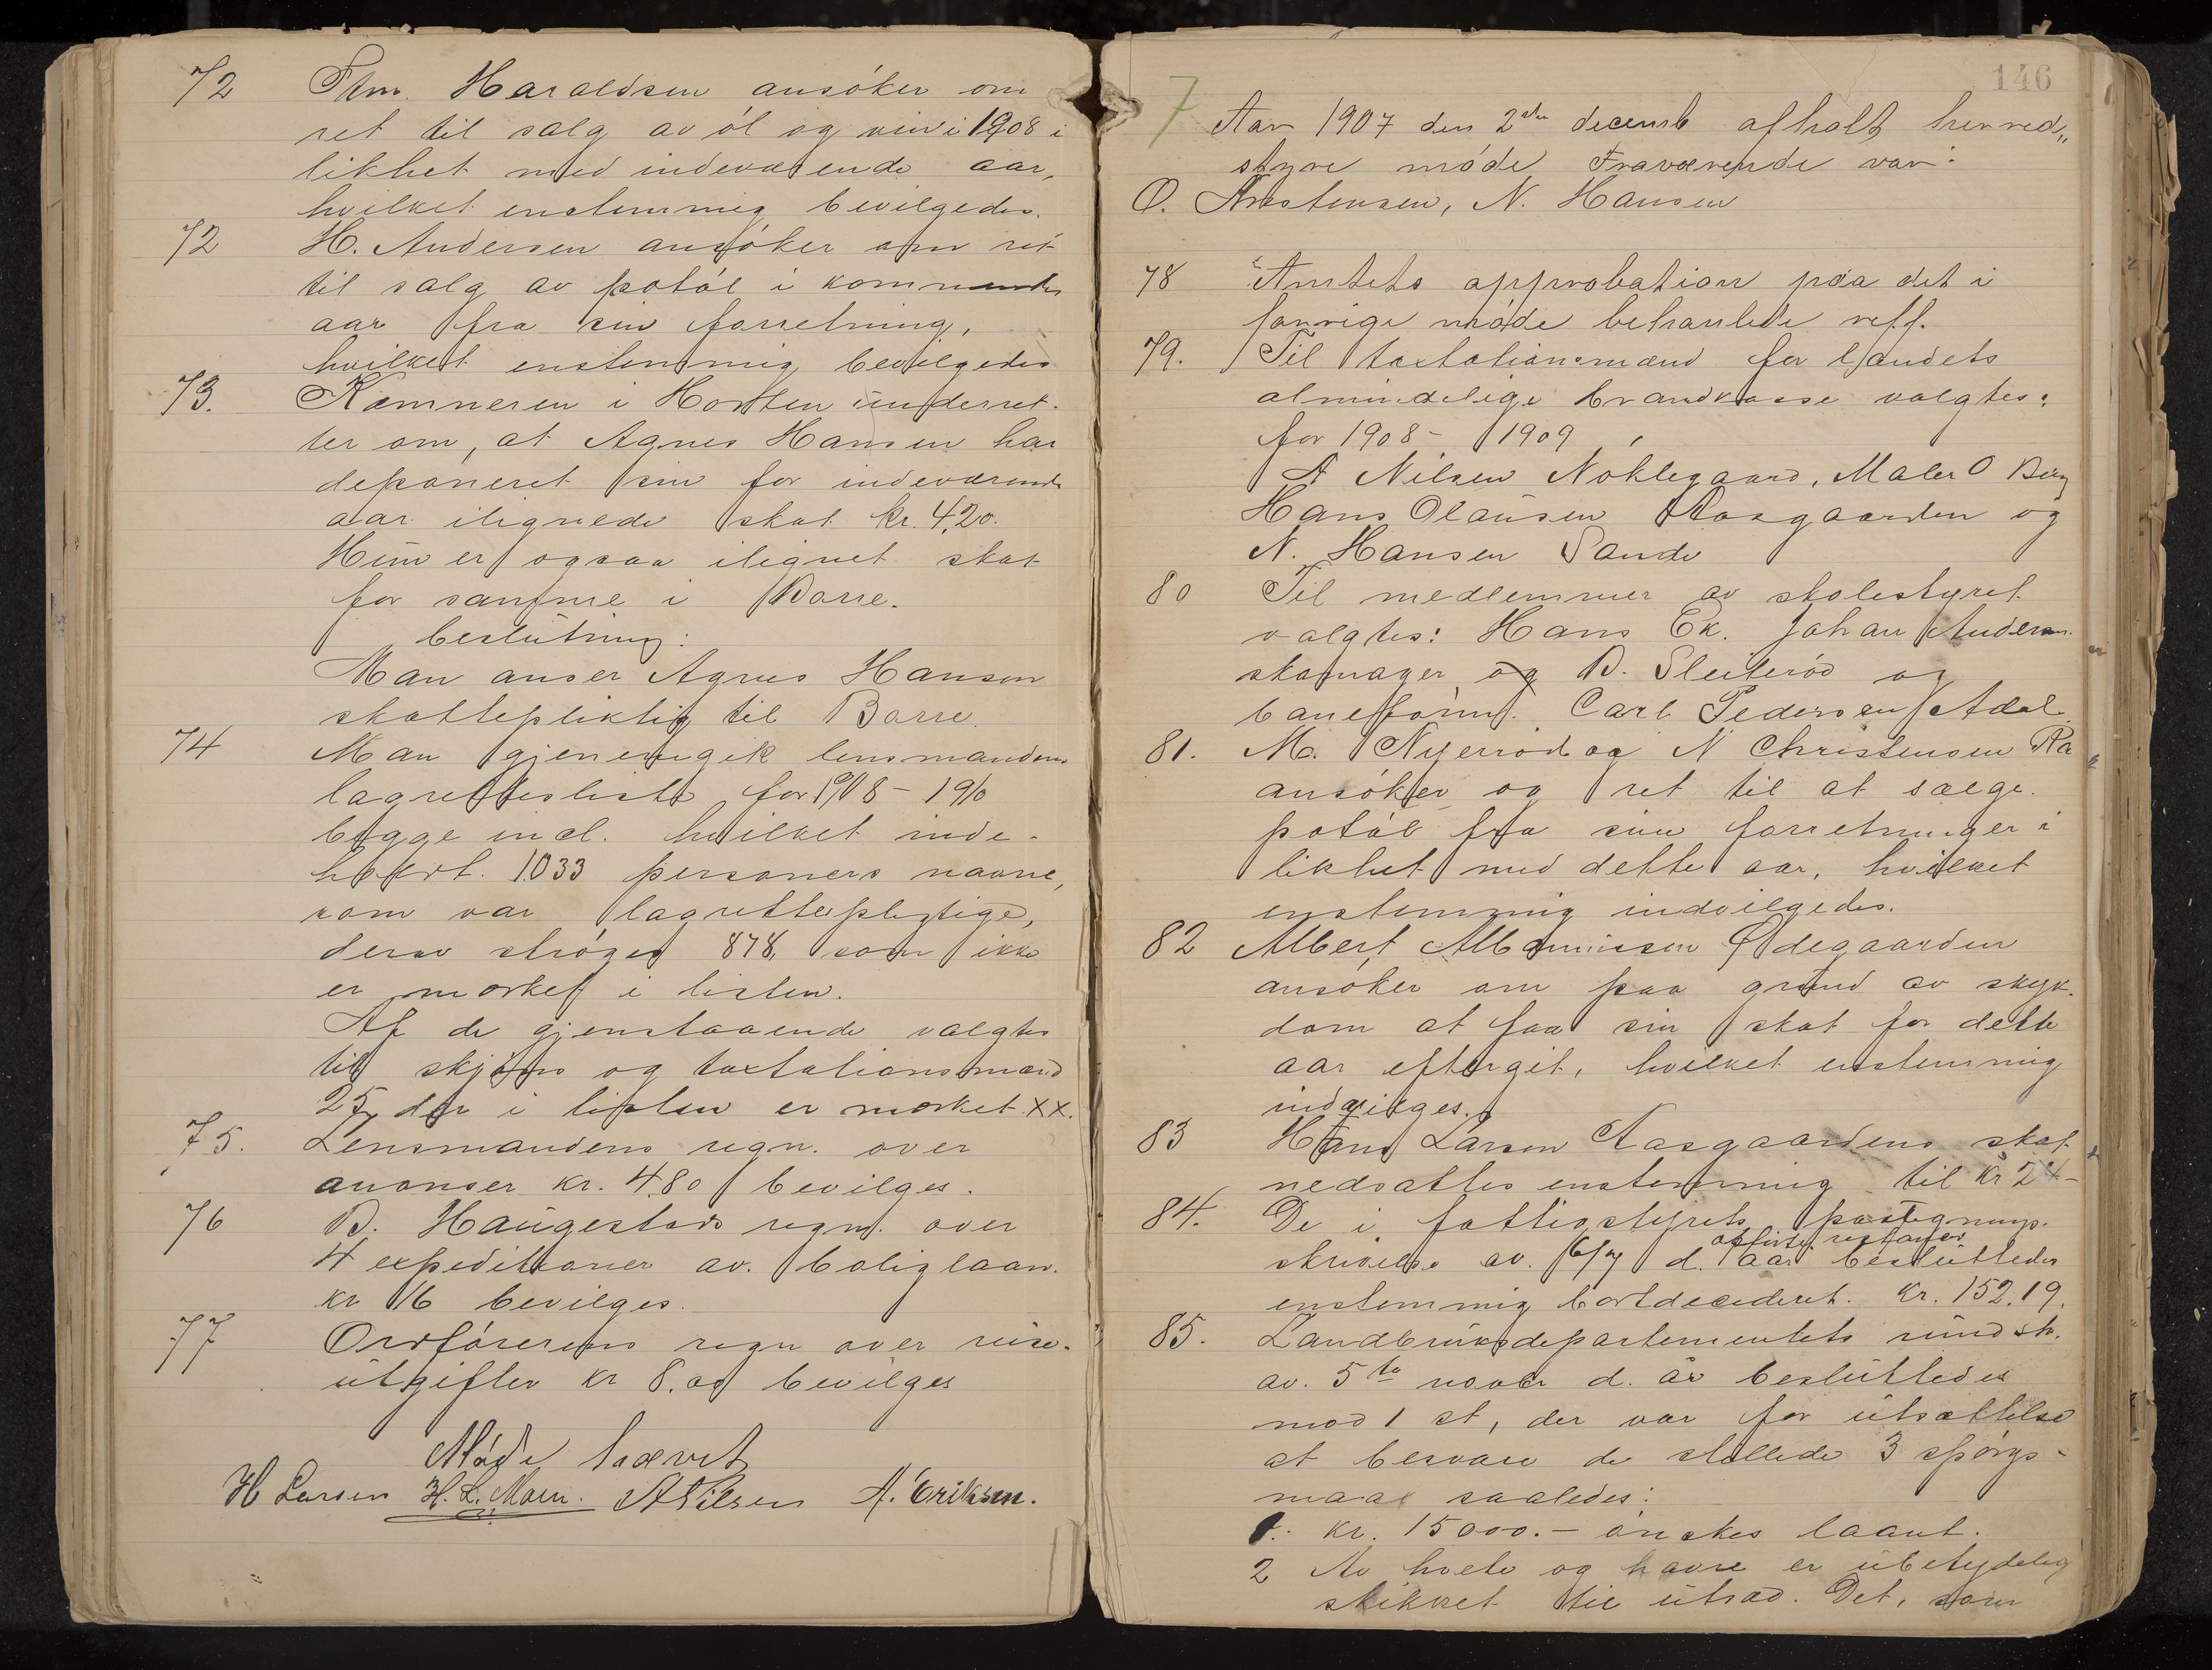 72 Fhm. Haraldsen ansöker om
ret til salg av öl og vin i 1908 i
likhet med indeværende aar,
hvilket enstemmig bevilgedes.
72 H. Andersen ansöker om ret
til salg av potöl i kommende
aar fra sin forretning,
hvilket enstemmig bevilgedes
73. Kæmneren i Horten underret-
ter om, at Agnes Hansen har
deponeret sin for indeværende
aar ilignede skat kr. 4,20.
Hun er ogsaa ilignet skat
for samme i Borre.
beslutning:
Man anser Agnes Hanson
skattepliktig til Borre.
74 Man gjenemgik lensmandens
lagrettesliste for 1908 - 1910
begge incl. hvilket inde-
holdt. 1033 personers navne,
som var lagrettepligtige,
derav ströges 878, som ikke
er mærket i listen.
Af de gjenstaaende valgtes
til skjöns og taxtationsmænd
25, der i listen er mærket xx.
75. Lensmandens regn. over
anonser kr. 4.80 bevilges.
76 B. Haugestads regn. over
4 expeditioner av. boliglaan.
kr 16 bevilges.
77 Ordförerens regn over reise-
utgifter kr 8.00 bevilges
Möde hævet
H Larsen H. L. Moen. A Nilsen A. Eriksen.
146
7 Aar 1907 den 2den decemb afholdt herred„
styre möde Fraværende var:
O. Anstensen, N. Hansen
78 Amtets approbation paa det i
forrige möde behanlede reff.
79. Til taxtationsmænd for landets
almindelige brandkasse valgtes:
for 1908 - 1909,
A Nilsen Nöklegaard, Maler O Berg
Hans Olausen Aasgaarden og
N. Hansen Sande
80 Til medlemmer av skolestyret
valgtes: Hans Ek. Johan Andersen
skomager og B. Sleiteröd og
baneform. Carl Pedersen Adal
81. M. Nyerröd og N Christensen Ra
ansöker og ret til at sælge
potöl fra sine forretninger i
likhet med dette aar, hvilket
enstemmig indvilgedes.
82 Albert Albornissen Ødegaarden
ansöker om paa grund av skyk-
dom at faa sin skat for dette
aar eftergit, hvilket enstemmig
indvilges.
83 Hans Larsen Aasgaardens skat
nedsattes enstemmig til kr 24-
84. De i fattigstyrets paategnings-
opförte restancer
skrivelse av. 6/7 d. aar besluttedes
enstemmig bortdecideret. kr. 152.19.
85. Landbruksdepartementets rundsk.
av. 5te novbr d. år besluttedes
mod 1 st, der var for utsættelse
at besvare de stillede 3 spörgs-
maal saaledes:
1. kr. 15000.- önskes laant.
2 Av hvete og havre er ubetydelig
skikket til utsæd. Det, som